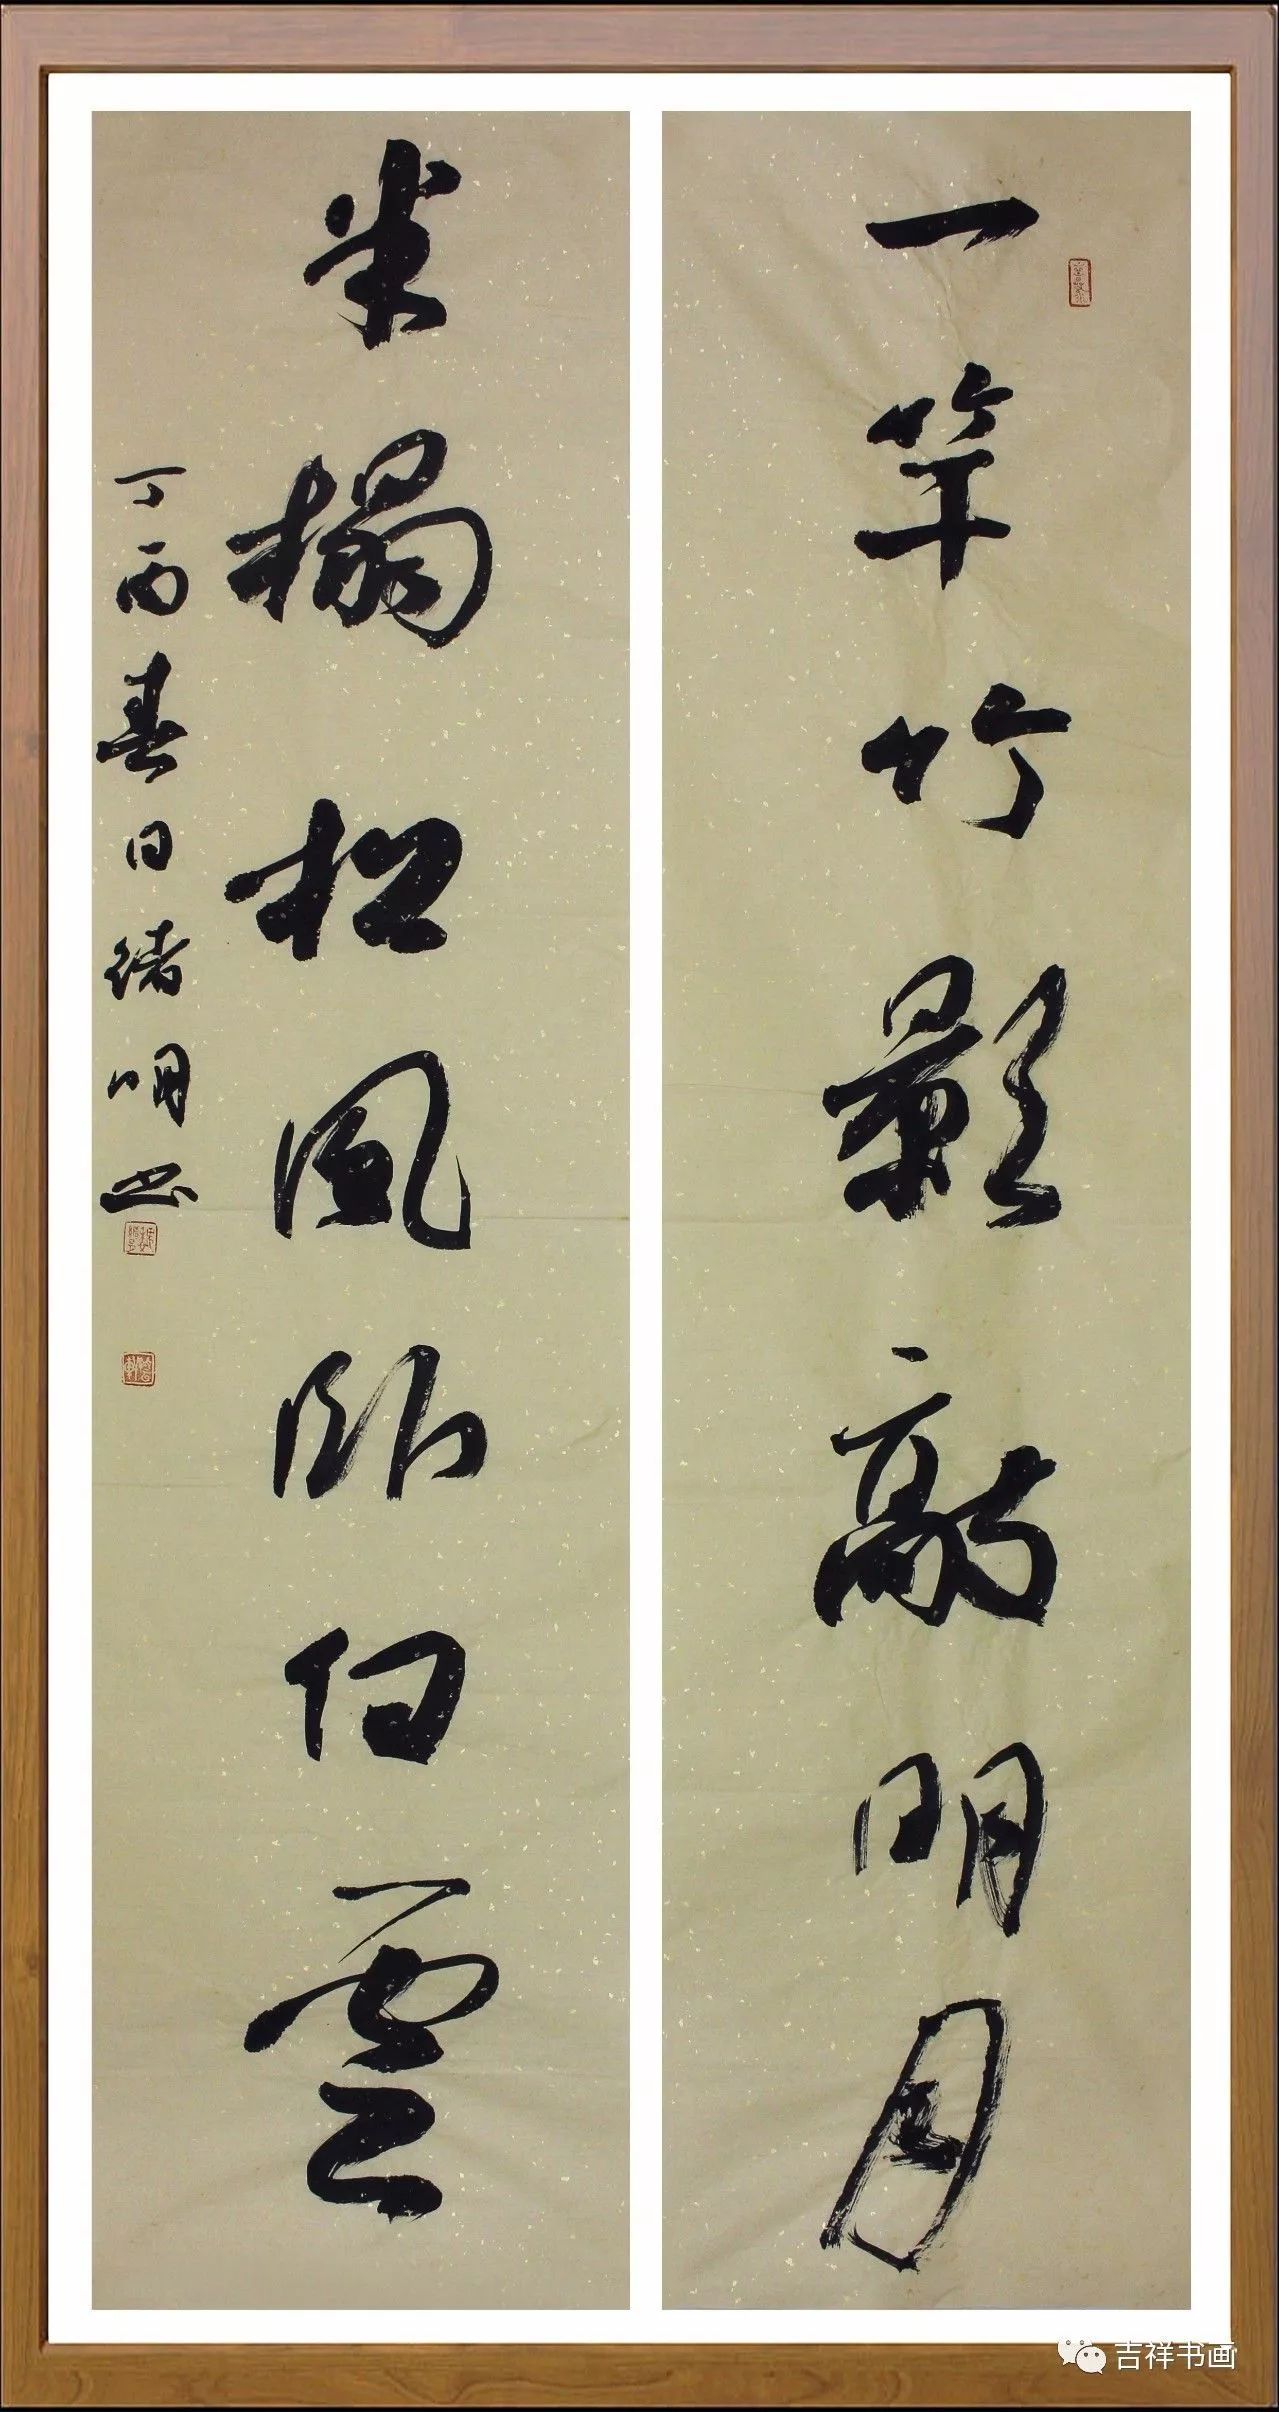 一竿竹影敲明月
半榻松風臥白雲
丁酉春日緒明书
吉祥书画